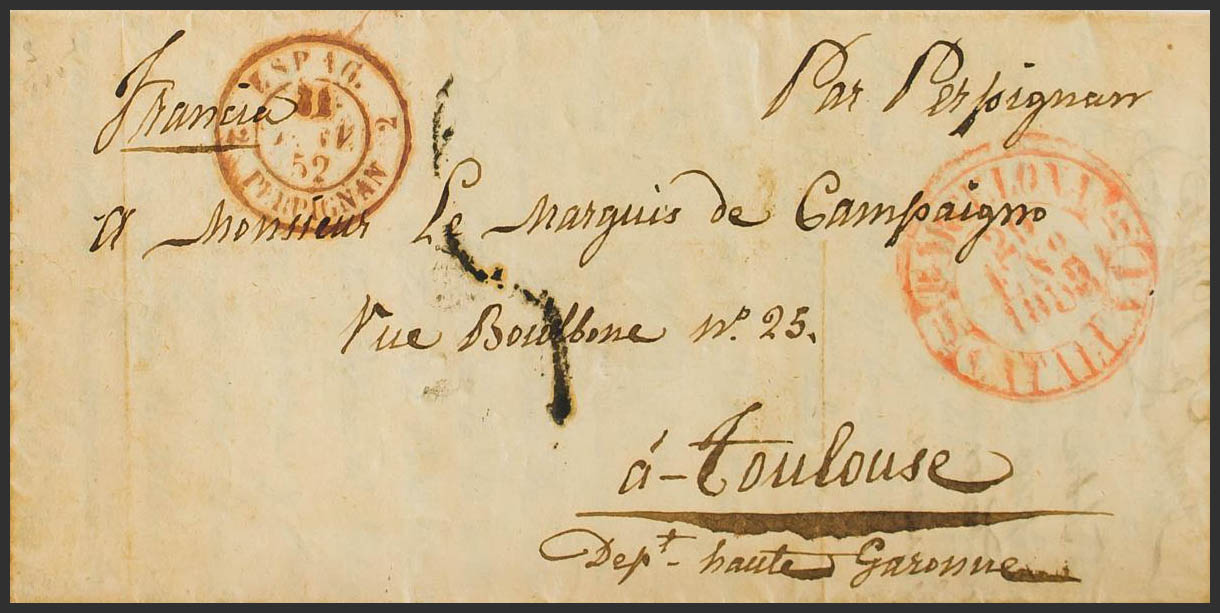 Francia
Par Perpignan
ESPAG.
2
52
PERPIGNAN
2
a Monsieur Le Marquis de Campaigno
rue Boulbone nº. 25.
á - Toulouse
Depᵗ - haute Garonne